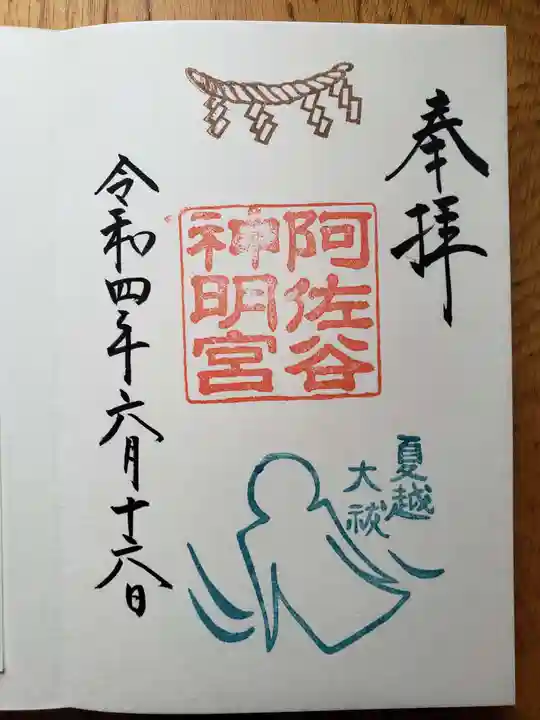 奉拝
阿佐谷
神明宮
夏越
大祓
令和四年六月十六日